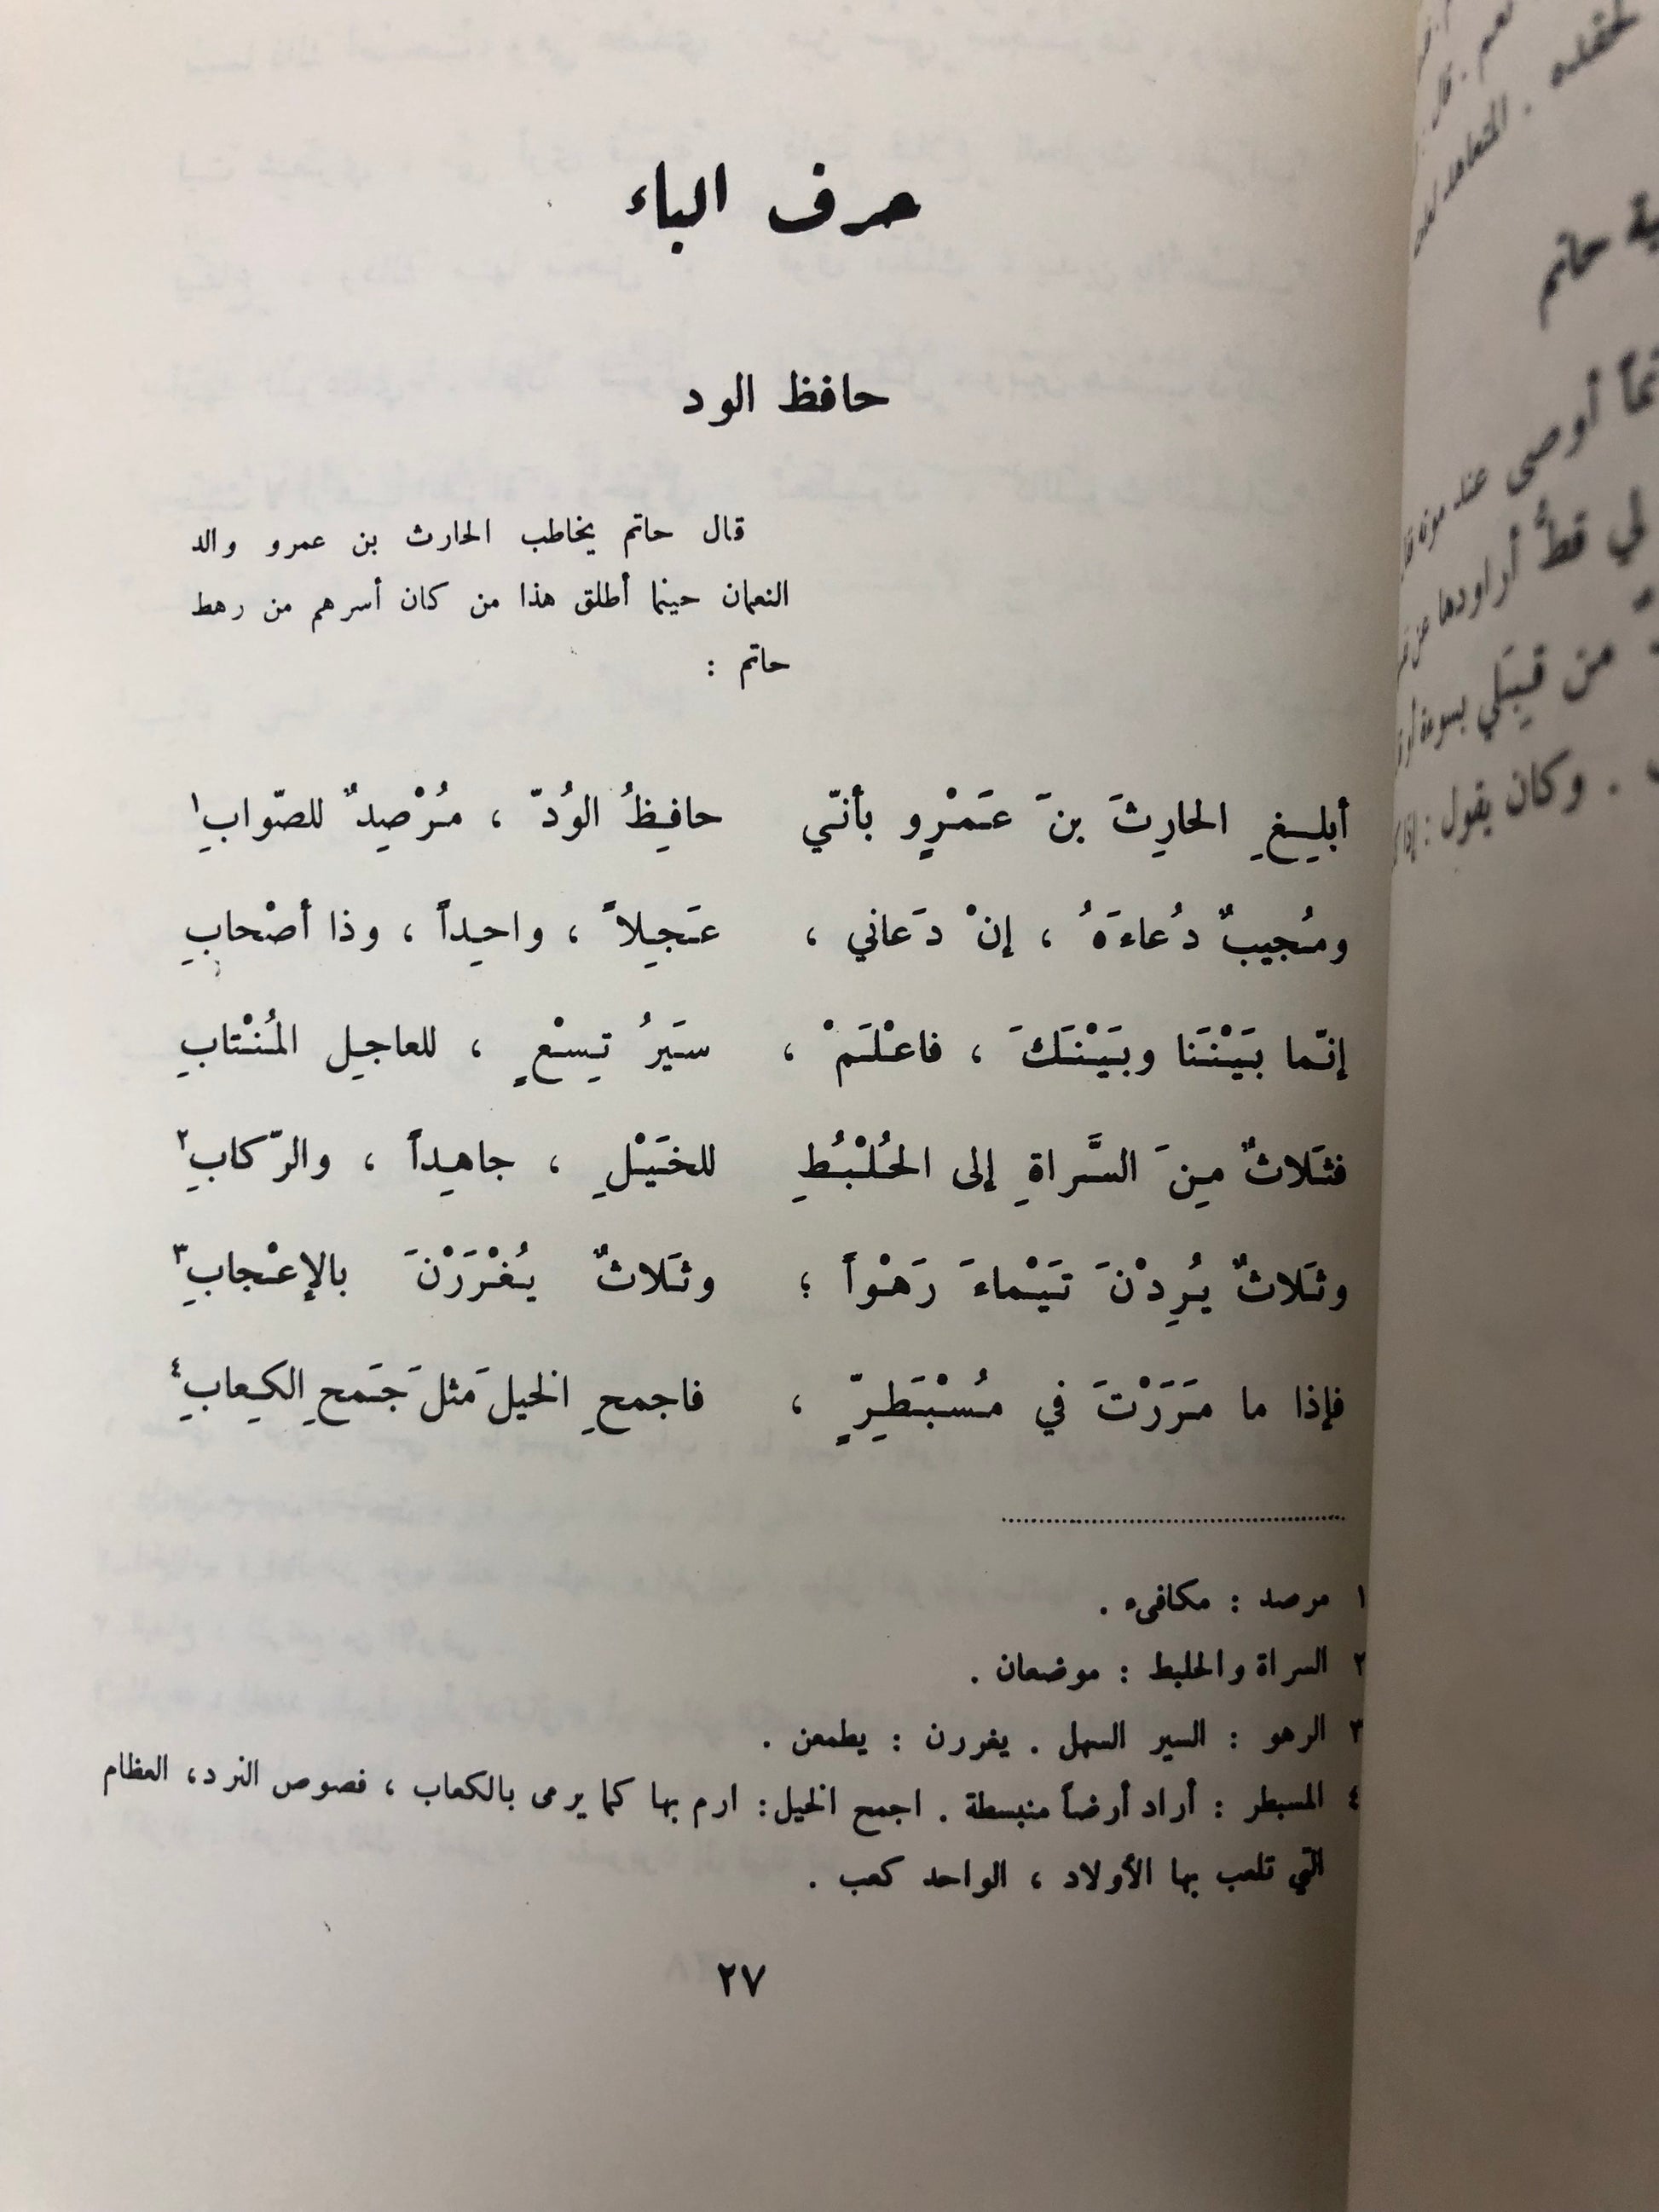 حرف الباء
حافظ الود
قال حاتم يخاطب الحارث بن عمرو والد
النعمان حينما أطلق هذا من كان أسرهم من رهط
حاتم :
أبلِـغِ الحارِثَ بنَ عَمْرٍو بأنّي حافِظُ الوُدّ ، مُرْصِدٌ للصّوابِ١
ومُجيبٌ دُعاءَهُ ، إنْ دَعاني ، عَجِلاً ، واحِداً ، وذا أصْحابِ
إنّما بَيْنَنَا وبَيْنَكَ ، فاعْلَمْ ، سَيرُ تِسْعٍ ، للعاجِلِ المُنْتابِ
فثَلاثٌ مِنَ السَّراةِ إلى الحُلْبُطِ للخَيْلِ ، جاهِداً ، والرّكابِ٢
وثَلاثٌ يُرِدْنَ تَيْماءَ رَهْواً ؛ وثَلاثٌ يُغْرَرْنَ بالإعْجابِ٣
فإذا ما مَرَرْتَ في مُسْبَطِرٍّ ، فاجمحِ الخيلَ مثلَ جَمحِ الكِعابِ٤
١ مرصد : مكافىء .
٢ السراة والحلبط : موضعان .
٣ الرهو : السير السهل . يغررن : يطمعن .
٤ المسبطر : أراد أرضاً منبسطة . اجمح الخيل : ارم بها كما يرمى بالكعاب ، فصوص النرد ، العظام
التي تلعب بها الأولاد ، الواحد كعب .
٢٧
حاتم
أوصى عند موته
لي قطُّ أراودها عن
من قِبَلي بسوءة
. وكان يقول : إذا